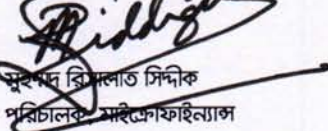 মুহম্মদ রিসালাত সিদ্দীক
পরিচালক, মাইক্রোফাইন্যান্স